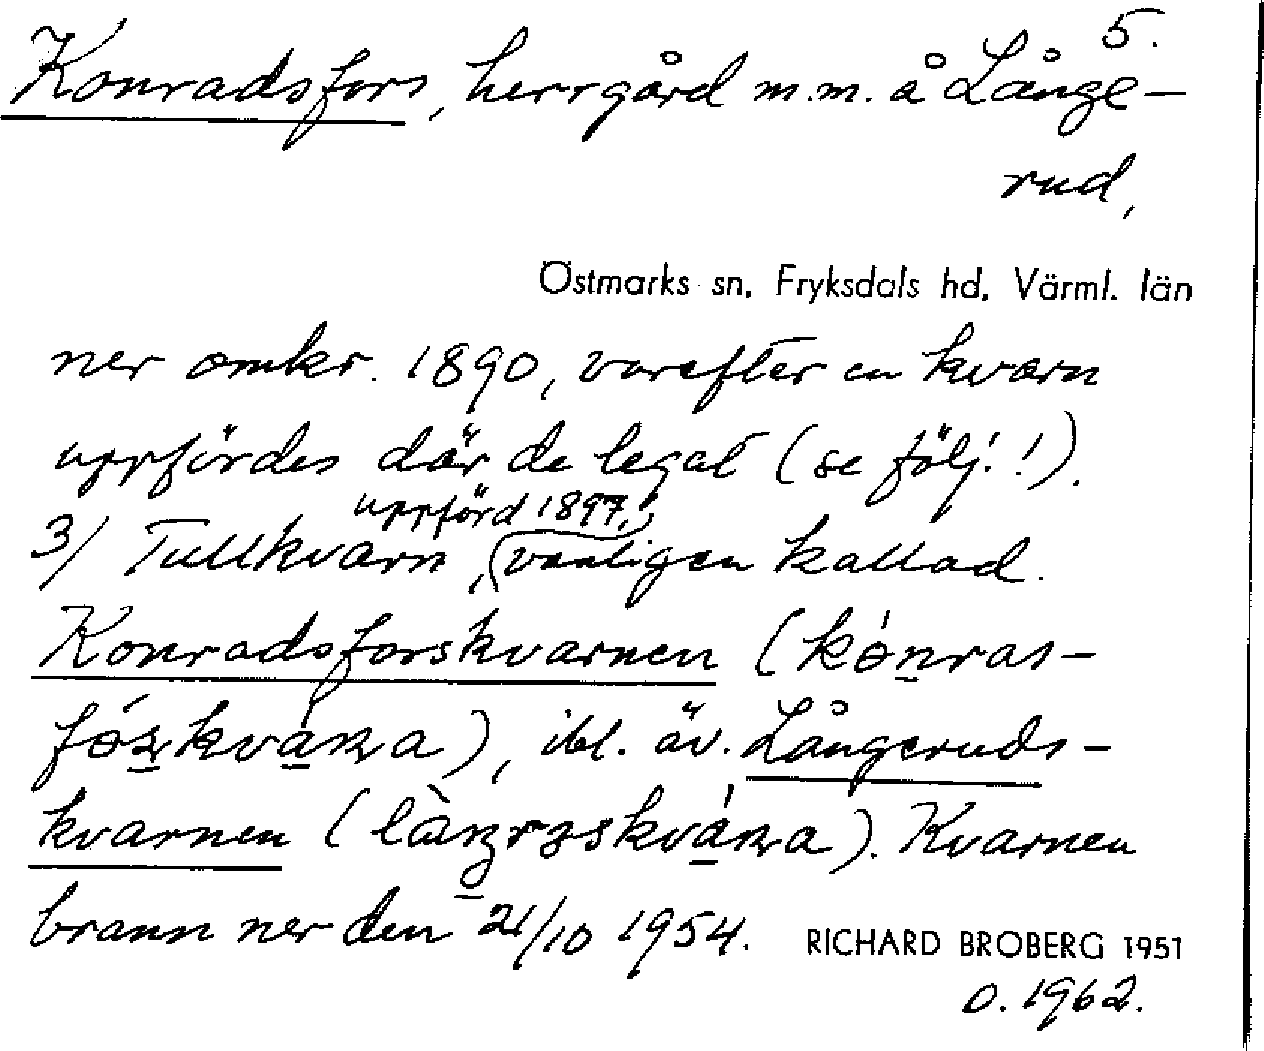 5.
Konradsfors, herrgård m.m. å Långe-
rud,
Östmarks sn. Fryksdals hd. Värml. län
ner omkr. 1890, varefter en kvarn
uppfördes där de legat (se följ.!).
uppförd 1897,
3/ Tullkvarn, vanligen kallad
Konradsforskvarnen
ibl. äv. Långeruds-
kvarnen Kvarnen
brann ner den 21/10 1954. RICHARD BROBERG 1951
o. 1962.